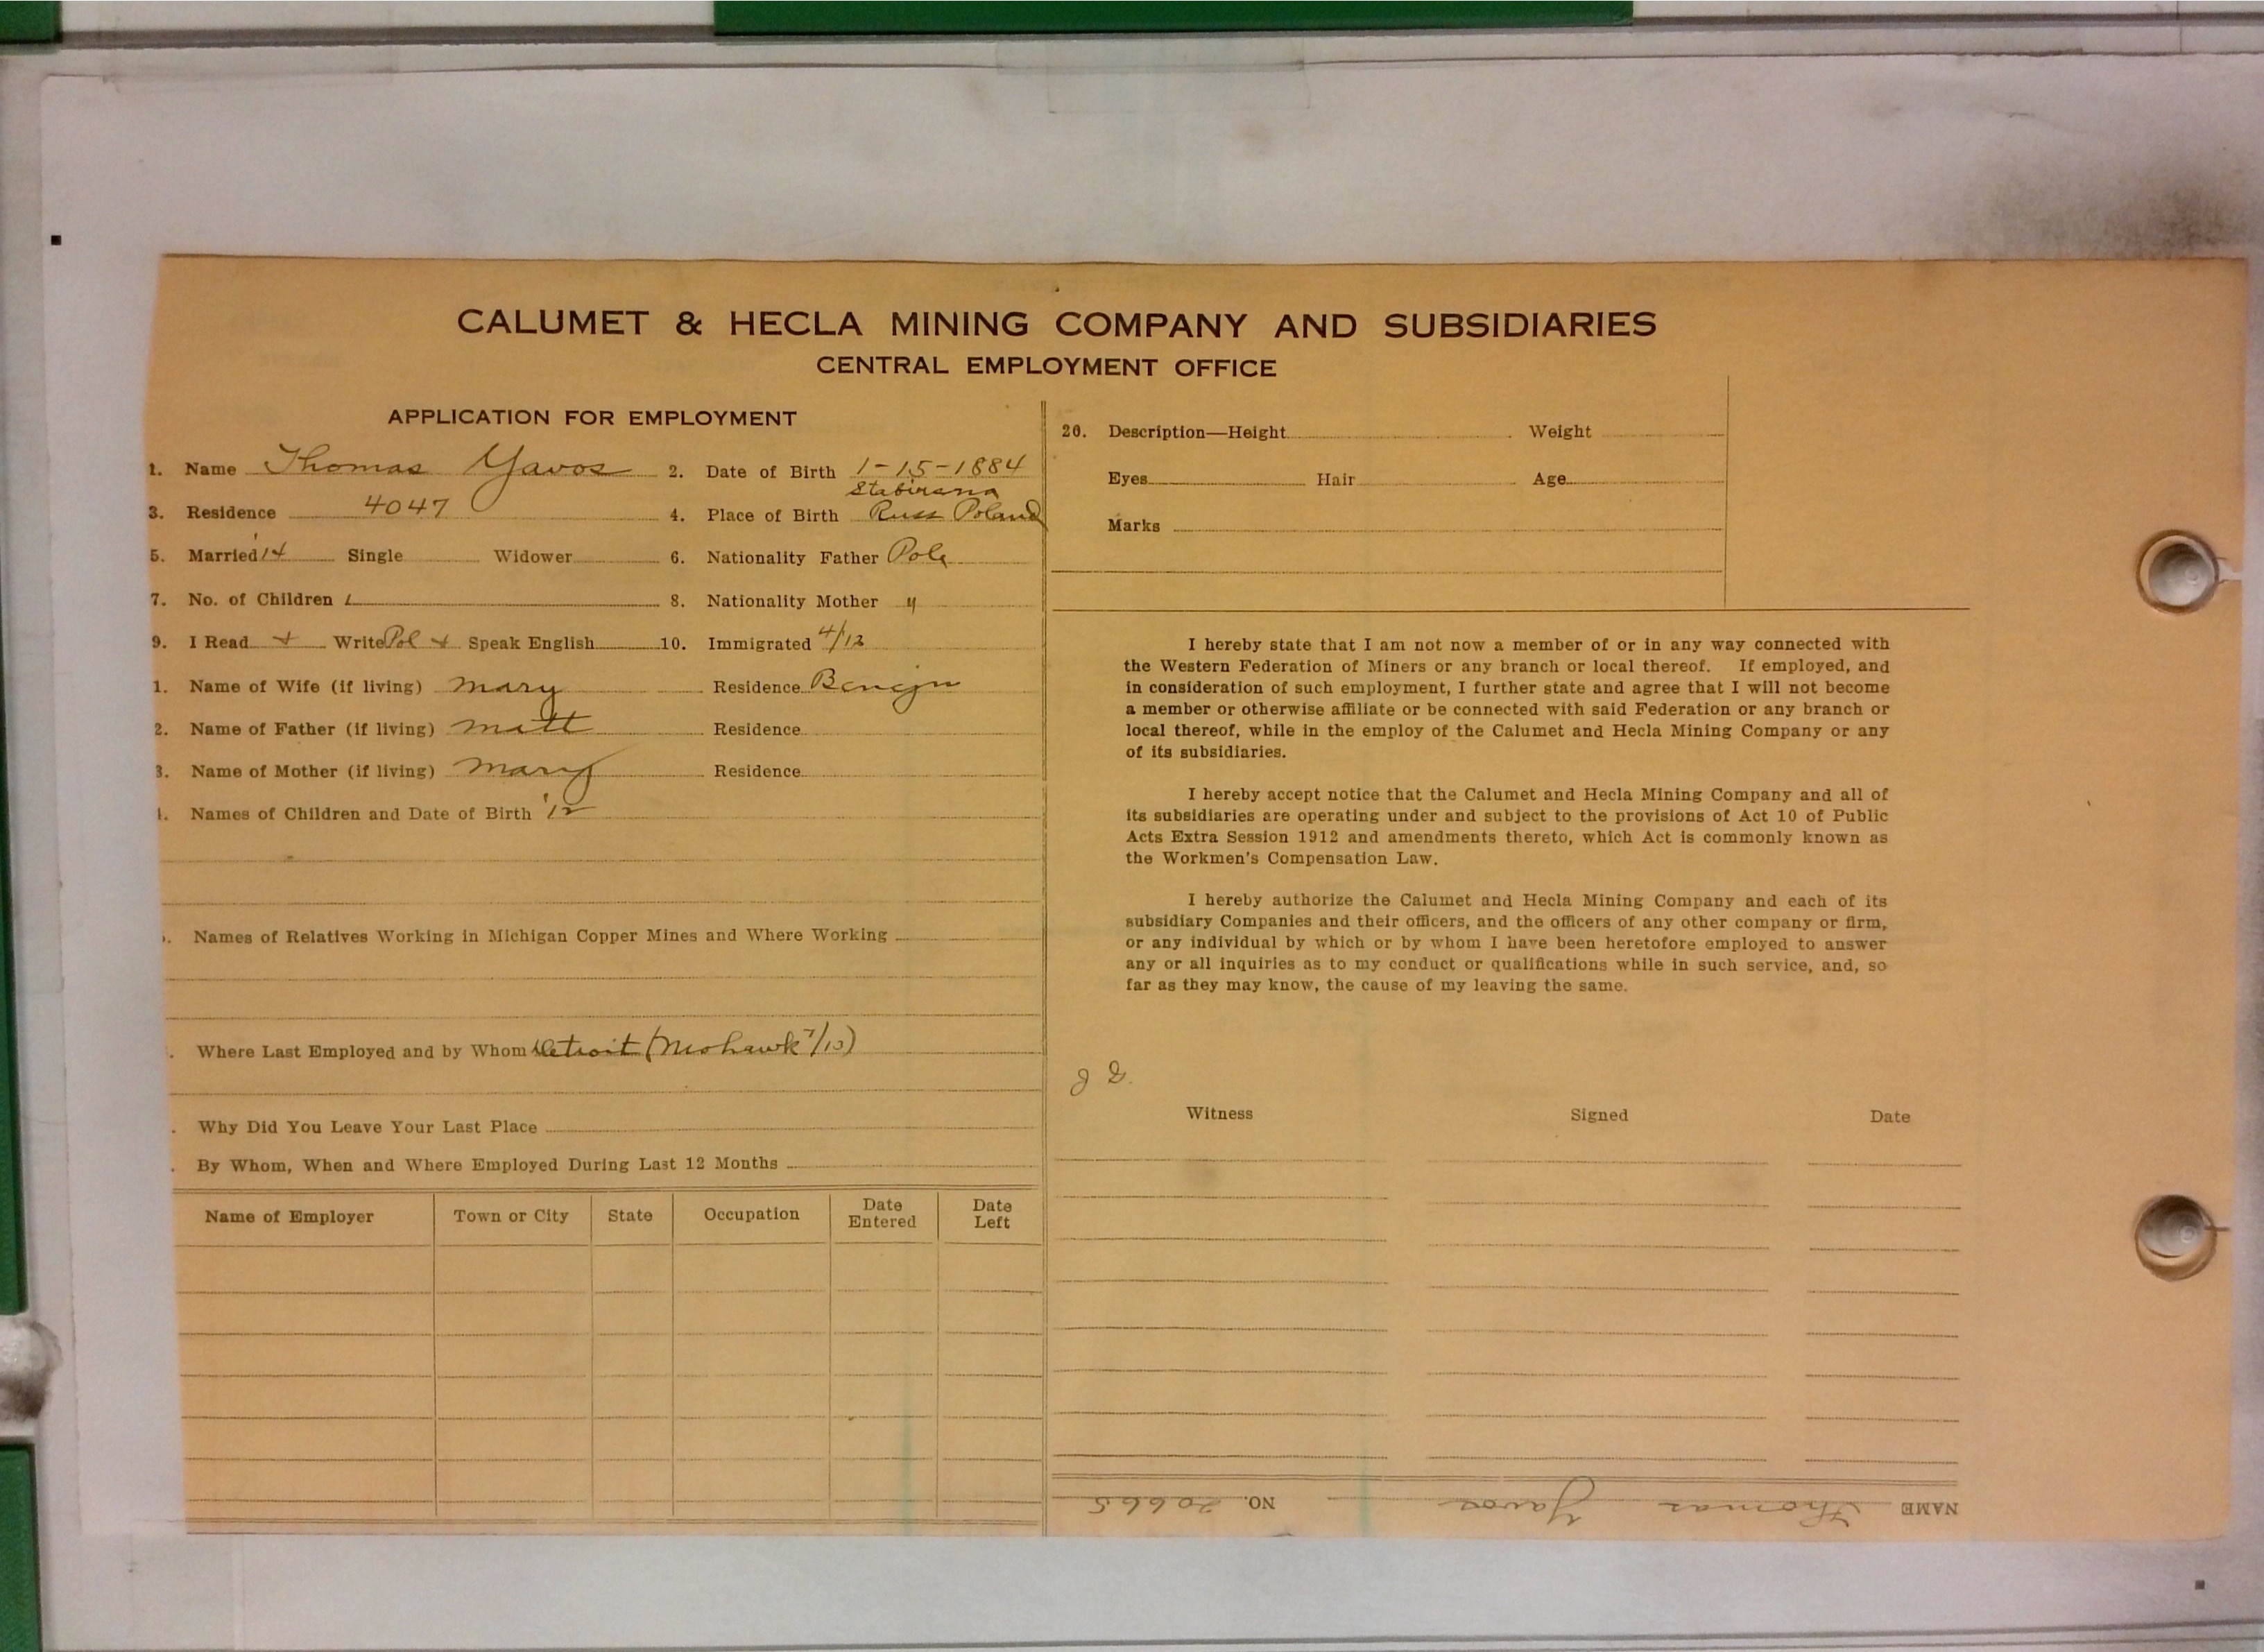 CALUMET & HECLA MINING COMPANY AND SUBSIDIARIES
CENTRAL EMPLOYMENT OFFICE
APPLICATION FOR EMPLOYMENT
1. Name Thomas Yavos 2. Date of Birth 1-15-1884
3. Residence 4047 4. Place of Birth Russ Poland
5. Married '14 Single Widower 6. Nationality Father Pole
7. No. of Children 1 8. Nationality Mother "
9. I Read + Write Pol + Speak English 10. Immigrated 4/12
1. Name of Wife (if living) Mary Residence
2. Name of Father (if living) Matt Residence
3. Name of Mother (if living) Mary Residence
Names of Children and Date of Birth '12
Names of Relatives Working in Michigan Copper Mines and Where Working
Where Last Employed and by Whom Detroit (Mohawk 7/13)
Why Did You Leave Your Last Place
By Whom, When and Where Employed During Last 12 Months
Name of Employer Town or City State Occupation Date Entered Date Left
20. Description—Height Weight
Eyes Hair Age
Marks
I hereby state that I am not now a member of or in any way connected with
the Western Federation of Miners or any branch or local thereof. If employed, and
in consideration of such employment, I further state and agree that I will not become
a member or otherwise affiliate or be connected with said Federation or any branch or
local thereof, while in the employ of the Calumet and Hecla Mining Company or any
of its subsidiaries.
I hereby accept notice that the Calumet and Hecla Mining Company and all of
its subsidiaries are operating under and subject to the provisions of Act 10 of Public
Acts Extra Session 1912 and amendments thereto, which Act is commonly known as
the Workmen's Compensation Law.
I hereby authorize the Calumet and Hecla Mining Company and each of its
subsidiary Companies and their officers, and the officers of any other company or firm,
or any individual by which or by whom I have been heretofore employed to answer
any or all inquiries as to my conduct or qualifications while in such service, and, so
far as they may know, the cause of my leaving the same.
Witness Signed Date
NAME Thomas Yavos NO. 20665